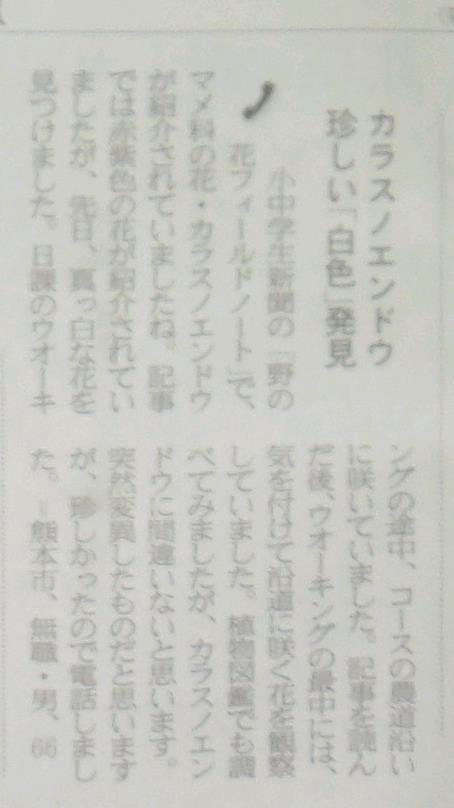 カラスノエンドウ
珍しい「白色」発見
小中学生新聞の「野の
花フィールドノート」で、
マメ科の花・カラスノエンドウ
が紹介されていましたね。記事
では赤紫色の花が紹介されてい
ましたが、先日、真っ白な花を
見つけました。日課のウオーキ
ングの途中、コースの農道沿い
に咲いていました。記事を読ん
だ後、ウオーキングの最中には、
気を付けて沿道に咲く花を観察
していました。植物図鑑でも調
べてみましたが、カラスノエン
ドウに間違いないと思います。
突然変異したものだと思います
が、珍しかったので電話しまし
た。＝熊本市、無職・男、66